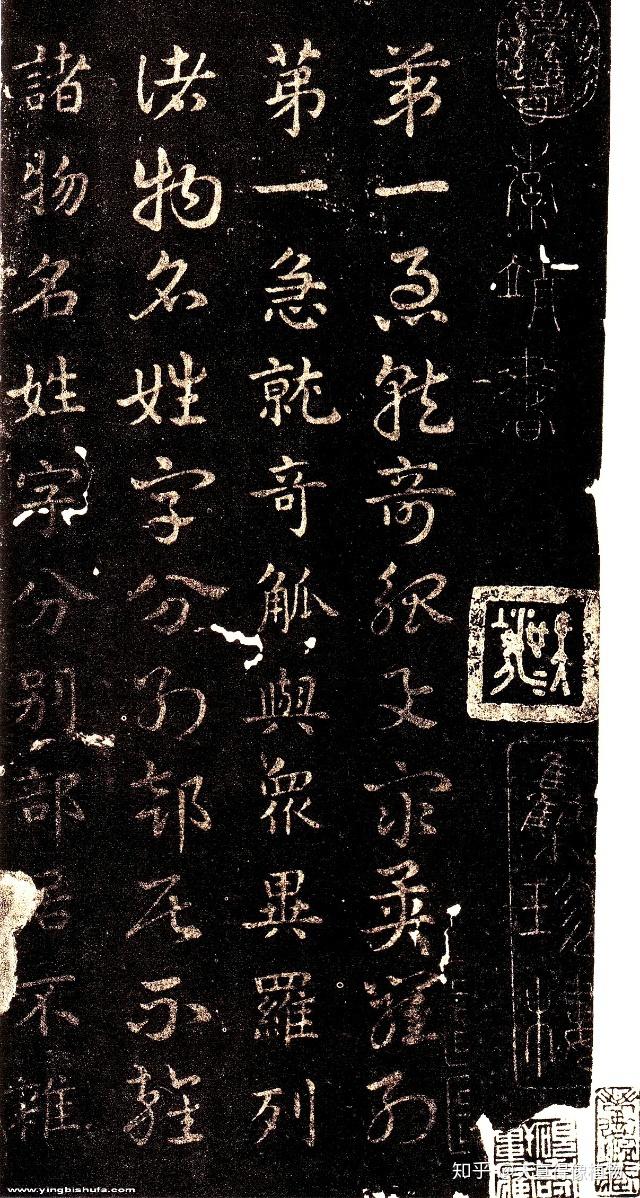 索靖書
第一急就奇觚与衆異羅列
第一急就奇觚與衆異羅列
诸物名姓字分别部居不雜
諸物名姓字分别部居不雜
www.yingbishufa.com
知乎